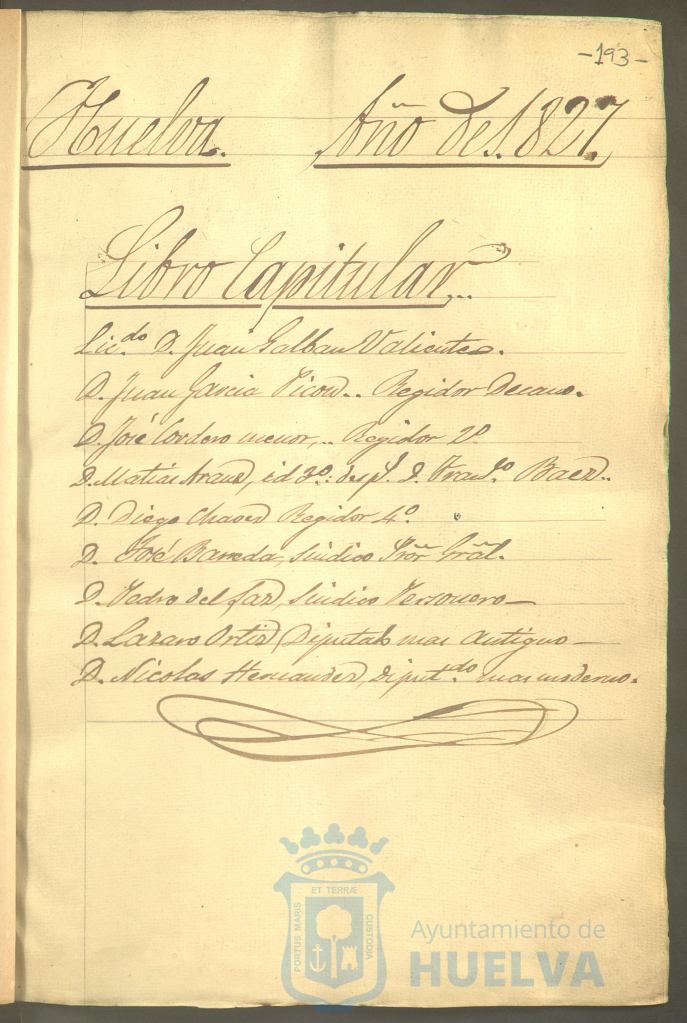 -193-
Huelva. Año de 1.827.
Libro Capitular...
Lic.do D. Juan Galban Valiente.
D. Juan Garcia Picon.. Regidor Decano.
D. José Cordero menor,.. Regidor 2º
D. Matias Arauz, id 3º: D. Fran.co Baez..
D. Diego Chaves Regidor 4º.
D. José Barreda, Sindico Pror Gral.
D. Pedro del Paz, Sindico Personero—
D. Lazaro Ortiz, Diputado mas antiguo—
D. Nicolas Hernandez, Diput.do mas moderno.
ET TERRÆ
PORTUS MARIS
CUSTODIA
Ayuntamiento de
HUELVA